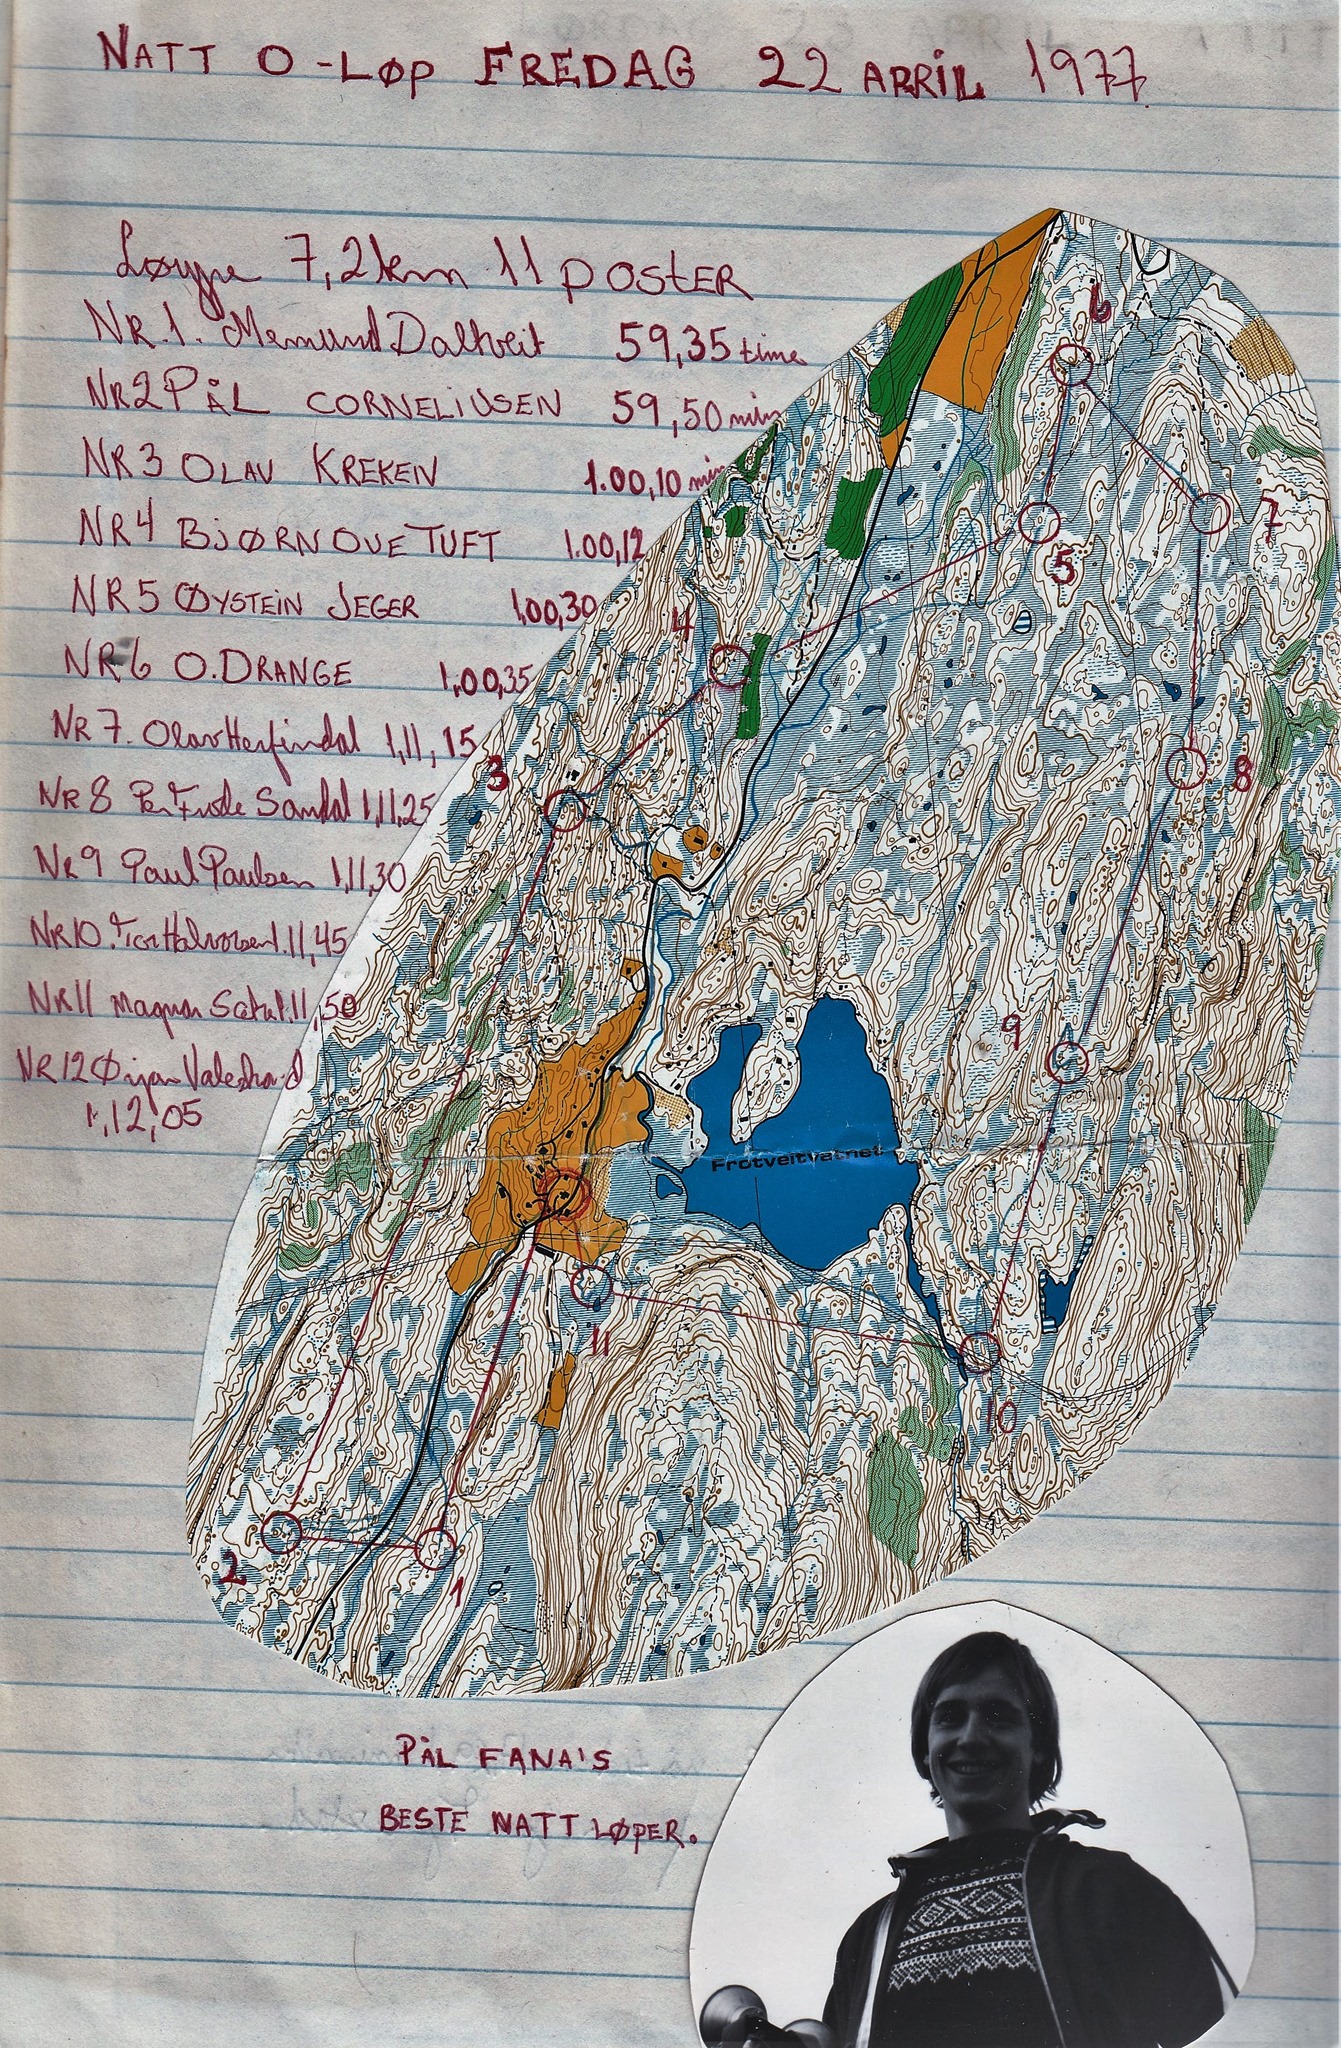 NATT O-LØP FREDAG 22 APRIL 1977
Løype 7,2km 11 POSTER
NR.1. Memund Daltveit 59,35 time
NR2 PÅL CORNELIUSEN 59,50 min
NR3 OLAV KREKEN 1.00,10 min
NR4 BJØRN OVE TUFT 1.00,12
NR5 ØYSTEIN JEGER 1,00,30
NR6 O.DRANGE 1,00,35
NR 7. Olav Herfindal 1,11,15
NR 8 Per Frode Sandal 1,11,25
NR 9 Paul Paulsen 1,11,30
NR10. Tor Halvorsen 1.11,45
NR11 Magnar 1.11,50
NR12 Ørjan
1,12,05
6
7
5
4
3
8
9
Frotveitvatnet
11
10
2
1
PÅL FANA'S
BESTE NATT LØPER.